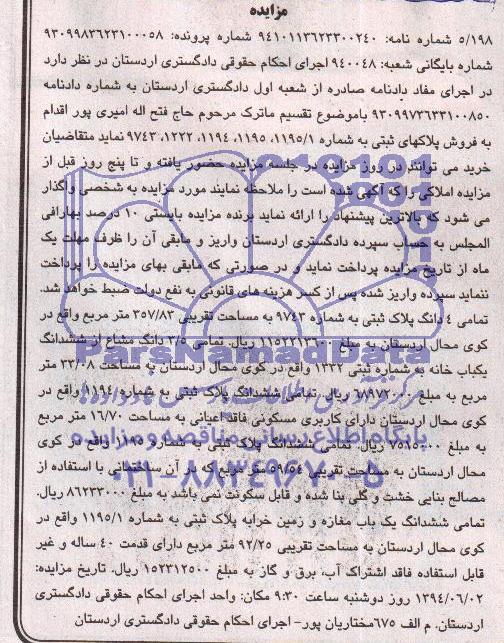 مزایده
۵/۱۹۸ شماره نامه: ۹۴۱۰۱۱۳۶۲۳۳۰۰۲۴۰ شماره پرونده: ۹۳۰۹۹۸۳۶۲۳۱۰۰۰۵۸
شماره بایگانی شعبه: ۹۴۰۰۴۸ اجرای احکام حقوقی دادگستری اردستان در نظر دارد
در اجرای مفاد دادنامه صادره از شعبه اول دادگستری اردستان به شماره دادنامه
۹۳۰۹۹۷۳۶۳۳۱۰۰۸۵۰ باموضوع تقسیم ماترک مرحوم حاج فتح اله امیری پور اقدام
به فروش پلاکهای ثبتی به شماره ۱۱۹۵/۱، ۱۱۹۵، ۱۱۹۴، ۱۲۲۲، ۹۷۴۳ نماید متقاضیان
خرید می توانند در روز مزایده در جلسه مزایده حضور یافته و تا پنج روز قبل از
مزایده املاکی را که آگهی شده است را ملاحظه نمایند مورد مزایده به شخصی واگذار
می شود که بالاترین پیشنهاد را ارائه نماید برنده مزایده بایستی ۱۰ درصد بهارافی
المجلس به حساب سپرده دادگستری اردستان واریز و مابقی آن را ظرف مهلت یک
ماه از تاریخ مزایده پرداخت نماید و در صورتی که مابقی بهای مزایده را پرداخت
ننماید سپرده واریز شده پس از کسر هزینه های قانونی به نفع دولت ضبط خواهد شد.
تمامی ۴ دانگ پلاک ثبتی به شماره ۹۷۴۳ به مساحت تقریبی ۳۵۷/۸۳ متر مربع واقع در
کوی محال اردستان به مبلغ ۱۱۵۲۲۱۳۶۰۰ ریال. تمامی ۳/۵ دانگ مشاع از ششدانگ
یکباب خانه به شماره ثبتی ۱۳۳۲ واقع در کوی محال اردستان به مساحت ۳۳/۰۸ متر
مربع به مبلغ ریال. تمامی ششدانگ پلاک ثبتی به شماره ۱۱۹۴ واقع در
کوی محال اردستان دارای کاربری مسکونی فاقد اعیانی به مساحت ۱۶/۷۰ متر مربع
به مبلغ ۷۵۱۵۰۰۰ ریال. تمامی ششدانگ پلاک ثبتی به شماره ۱۱۹۵ واقع در کوی
محال اردستان به مساحت تقریبی ۵۹/۵۴ متر مربع که در آن ساختمانی با استفاده از
مصالح بنایی خشت و گلی بنا شده و قابل سکونت نمی باشد به مبلغ ۸۶۲۳۳۰۰۰ ریال.
تمامی ششدانگ یک باب مغازه و زمین خرابه پلاک ثبتی به شماره ۱۱۹۵/۱ واقع در
کوی محال اردستان به مساحت تقریبی ۹۲/۲۵ متر مربع دارای قدمت ۴۰ ساله و غیر
قابل استفاده فاقد اشتراک آب، برق و گاز به مبلغ ۱۵۲۳۱۲۵۰۰ ریال. تاریخ مزایده:
۱۳۹۴/۰۶/۰۲ روز دوشنبه ساعت ۹:۳۰ مکان: واحد اجرای احکام حقوقی دادگستری
اردستان. م الف ۶۷۵مختاریان پور- اجرای احکام حقوقی دادگستری اردستان
ParsNamadData
پایگاه اطلاع رسانی مناقصه و مزایده
۰۲۱-۸۸۳۴۹۶۷۰-۵